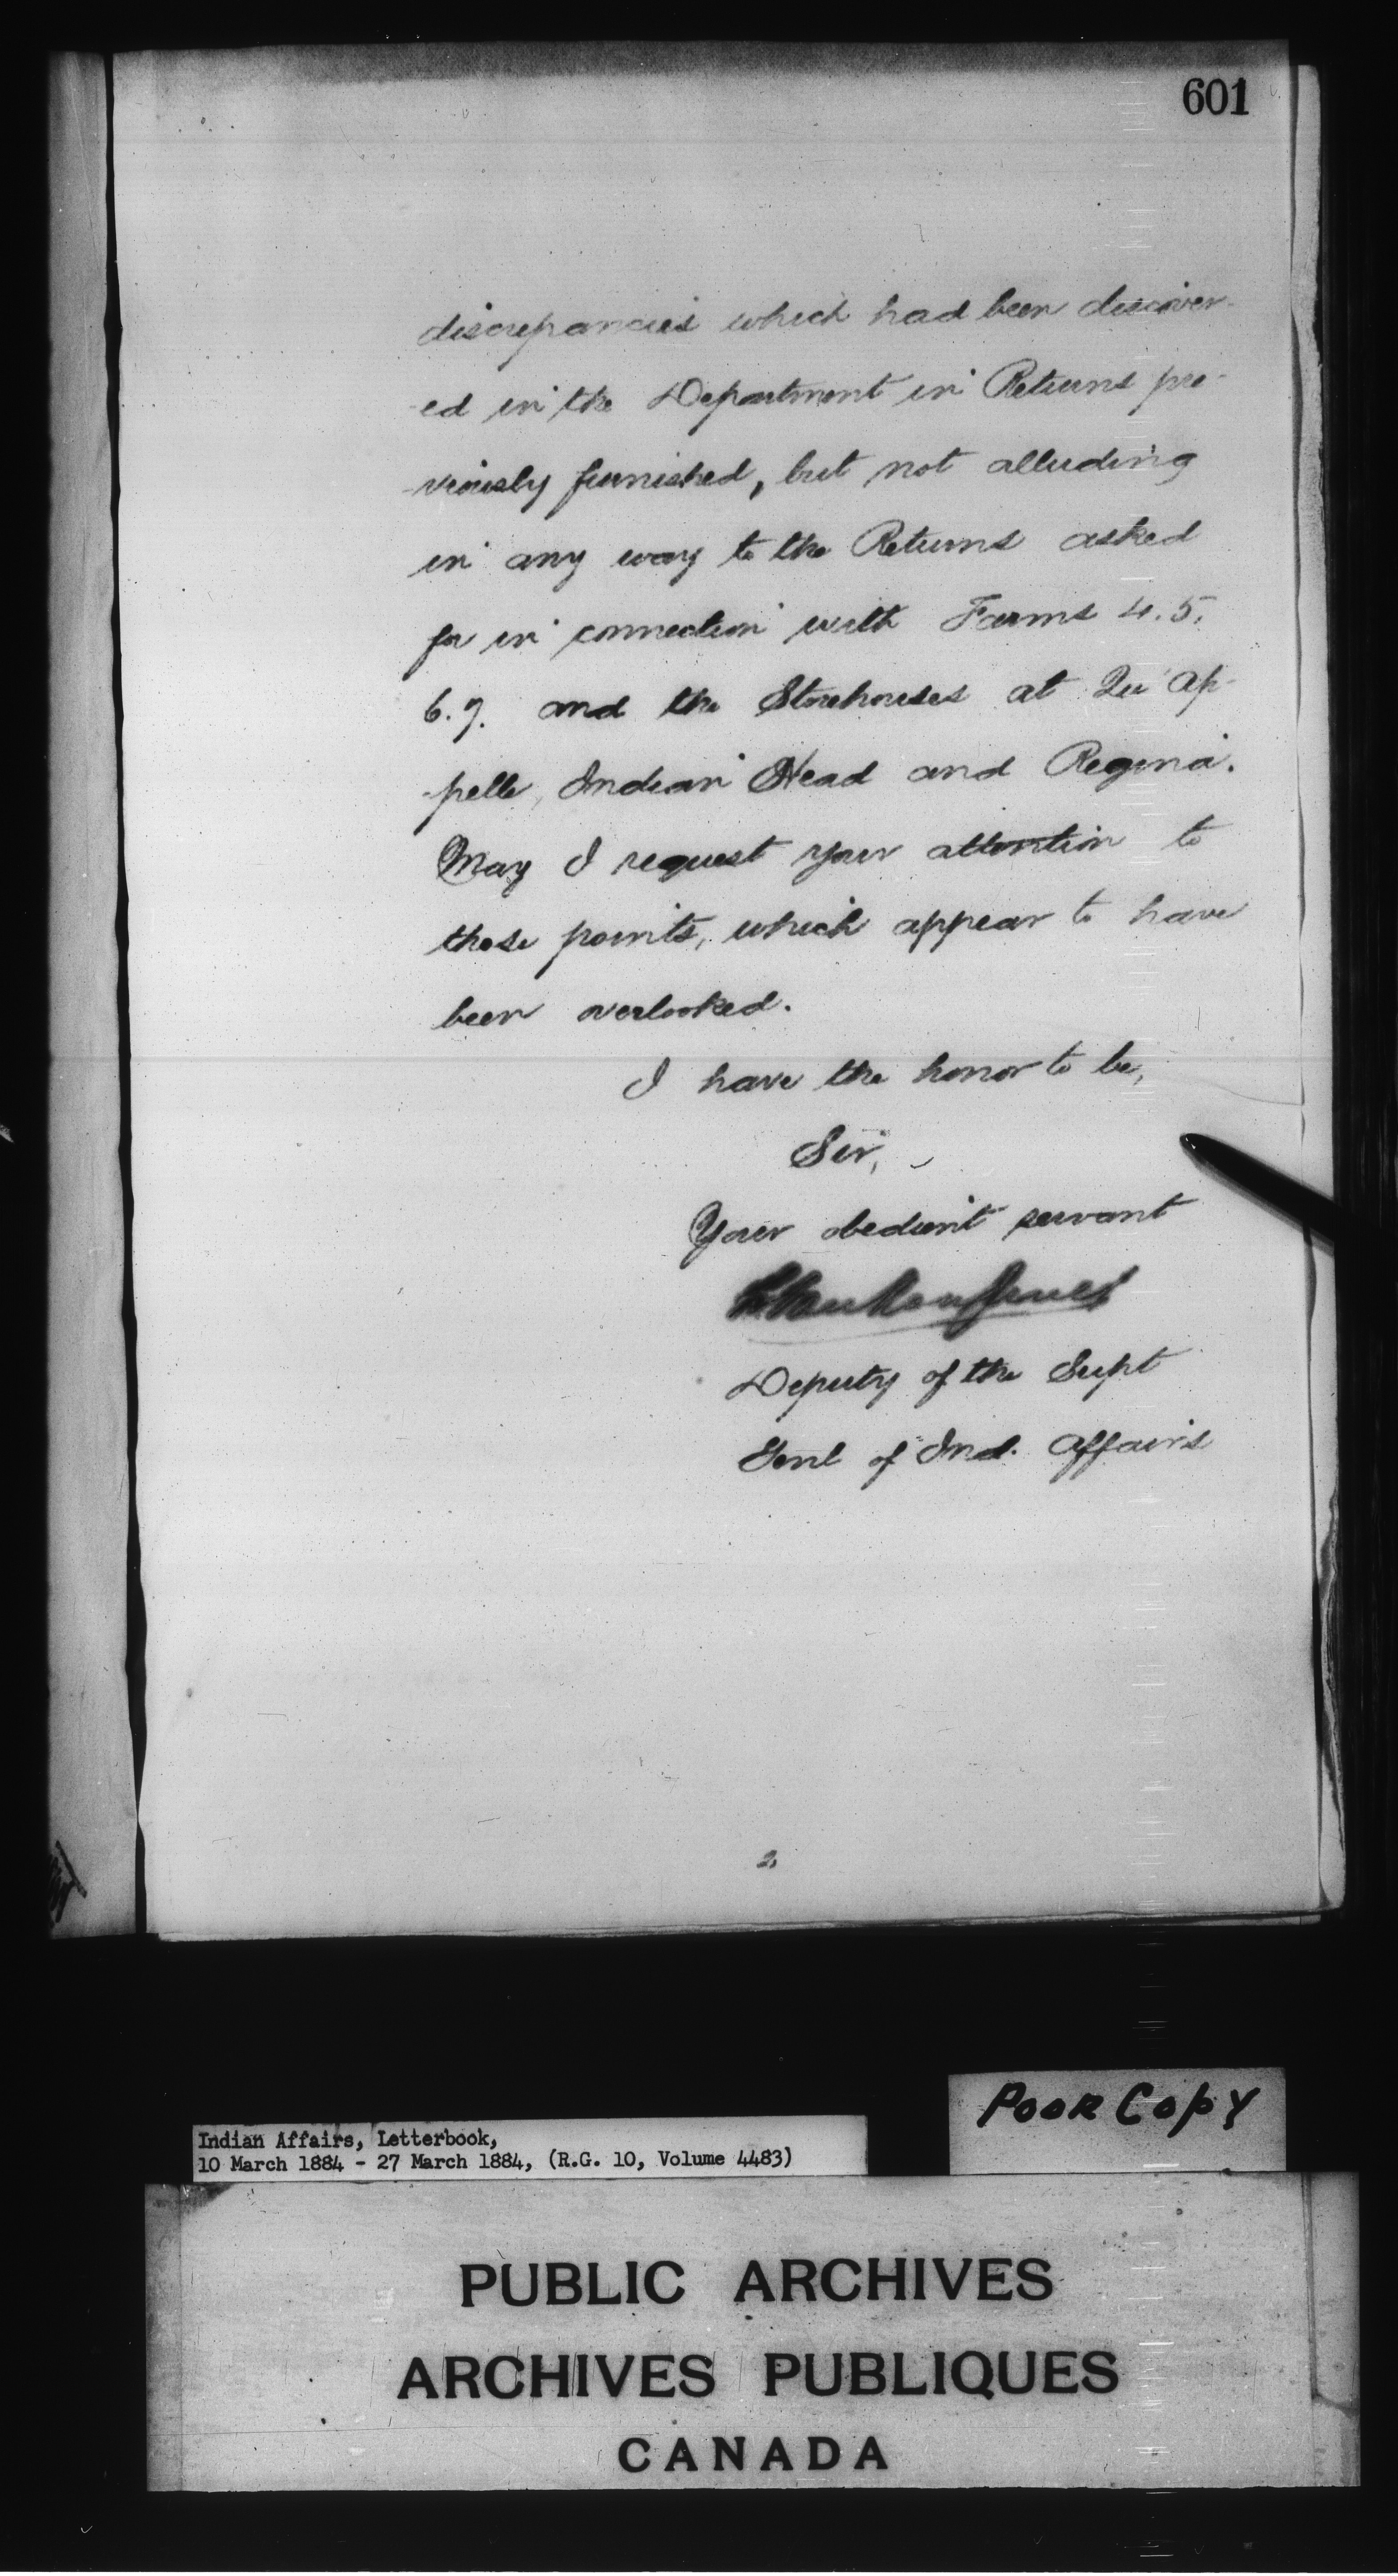 601
discrepancies which had been discover-
-ed in the Department in Returns pre-
-viously furnished, but not alluding
in any way to the Returns asked
for in connection with Farms 4.5.
6.7. and the Storehouses at Qu'Ap-
-pelle, Indian Head and Regina.
May I request your attention to
these points, which appear to have
been overlooked.
I have the honor to be,
Sir,
Your obedient servant
Deputy of the Supt
Genl of Ind. Affairs
2,
Poor Copy
Indian Affairs, Letterbook,
10 March 1884 - 27 March 1884, (R.G. 10, Volume 4483)
PUBLIC ARCHIVES
ARCHIVES PUBLIQUES
CANADA